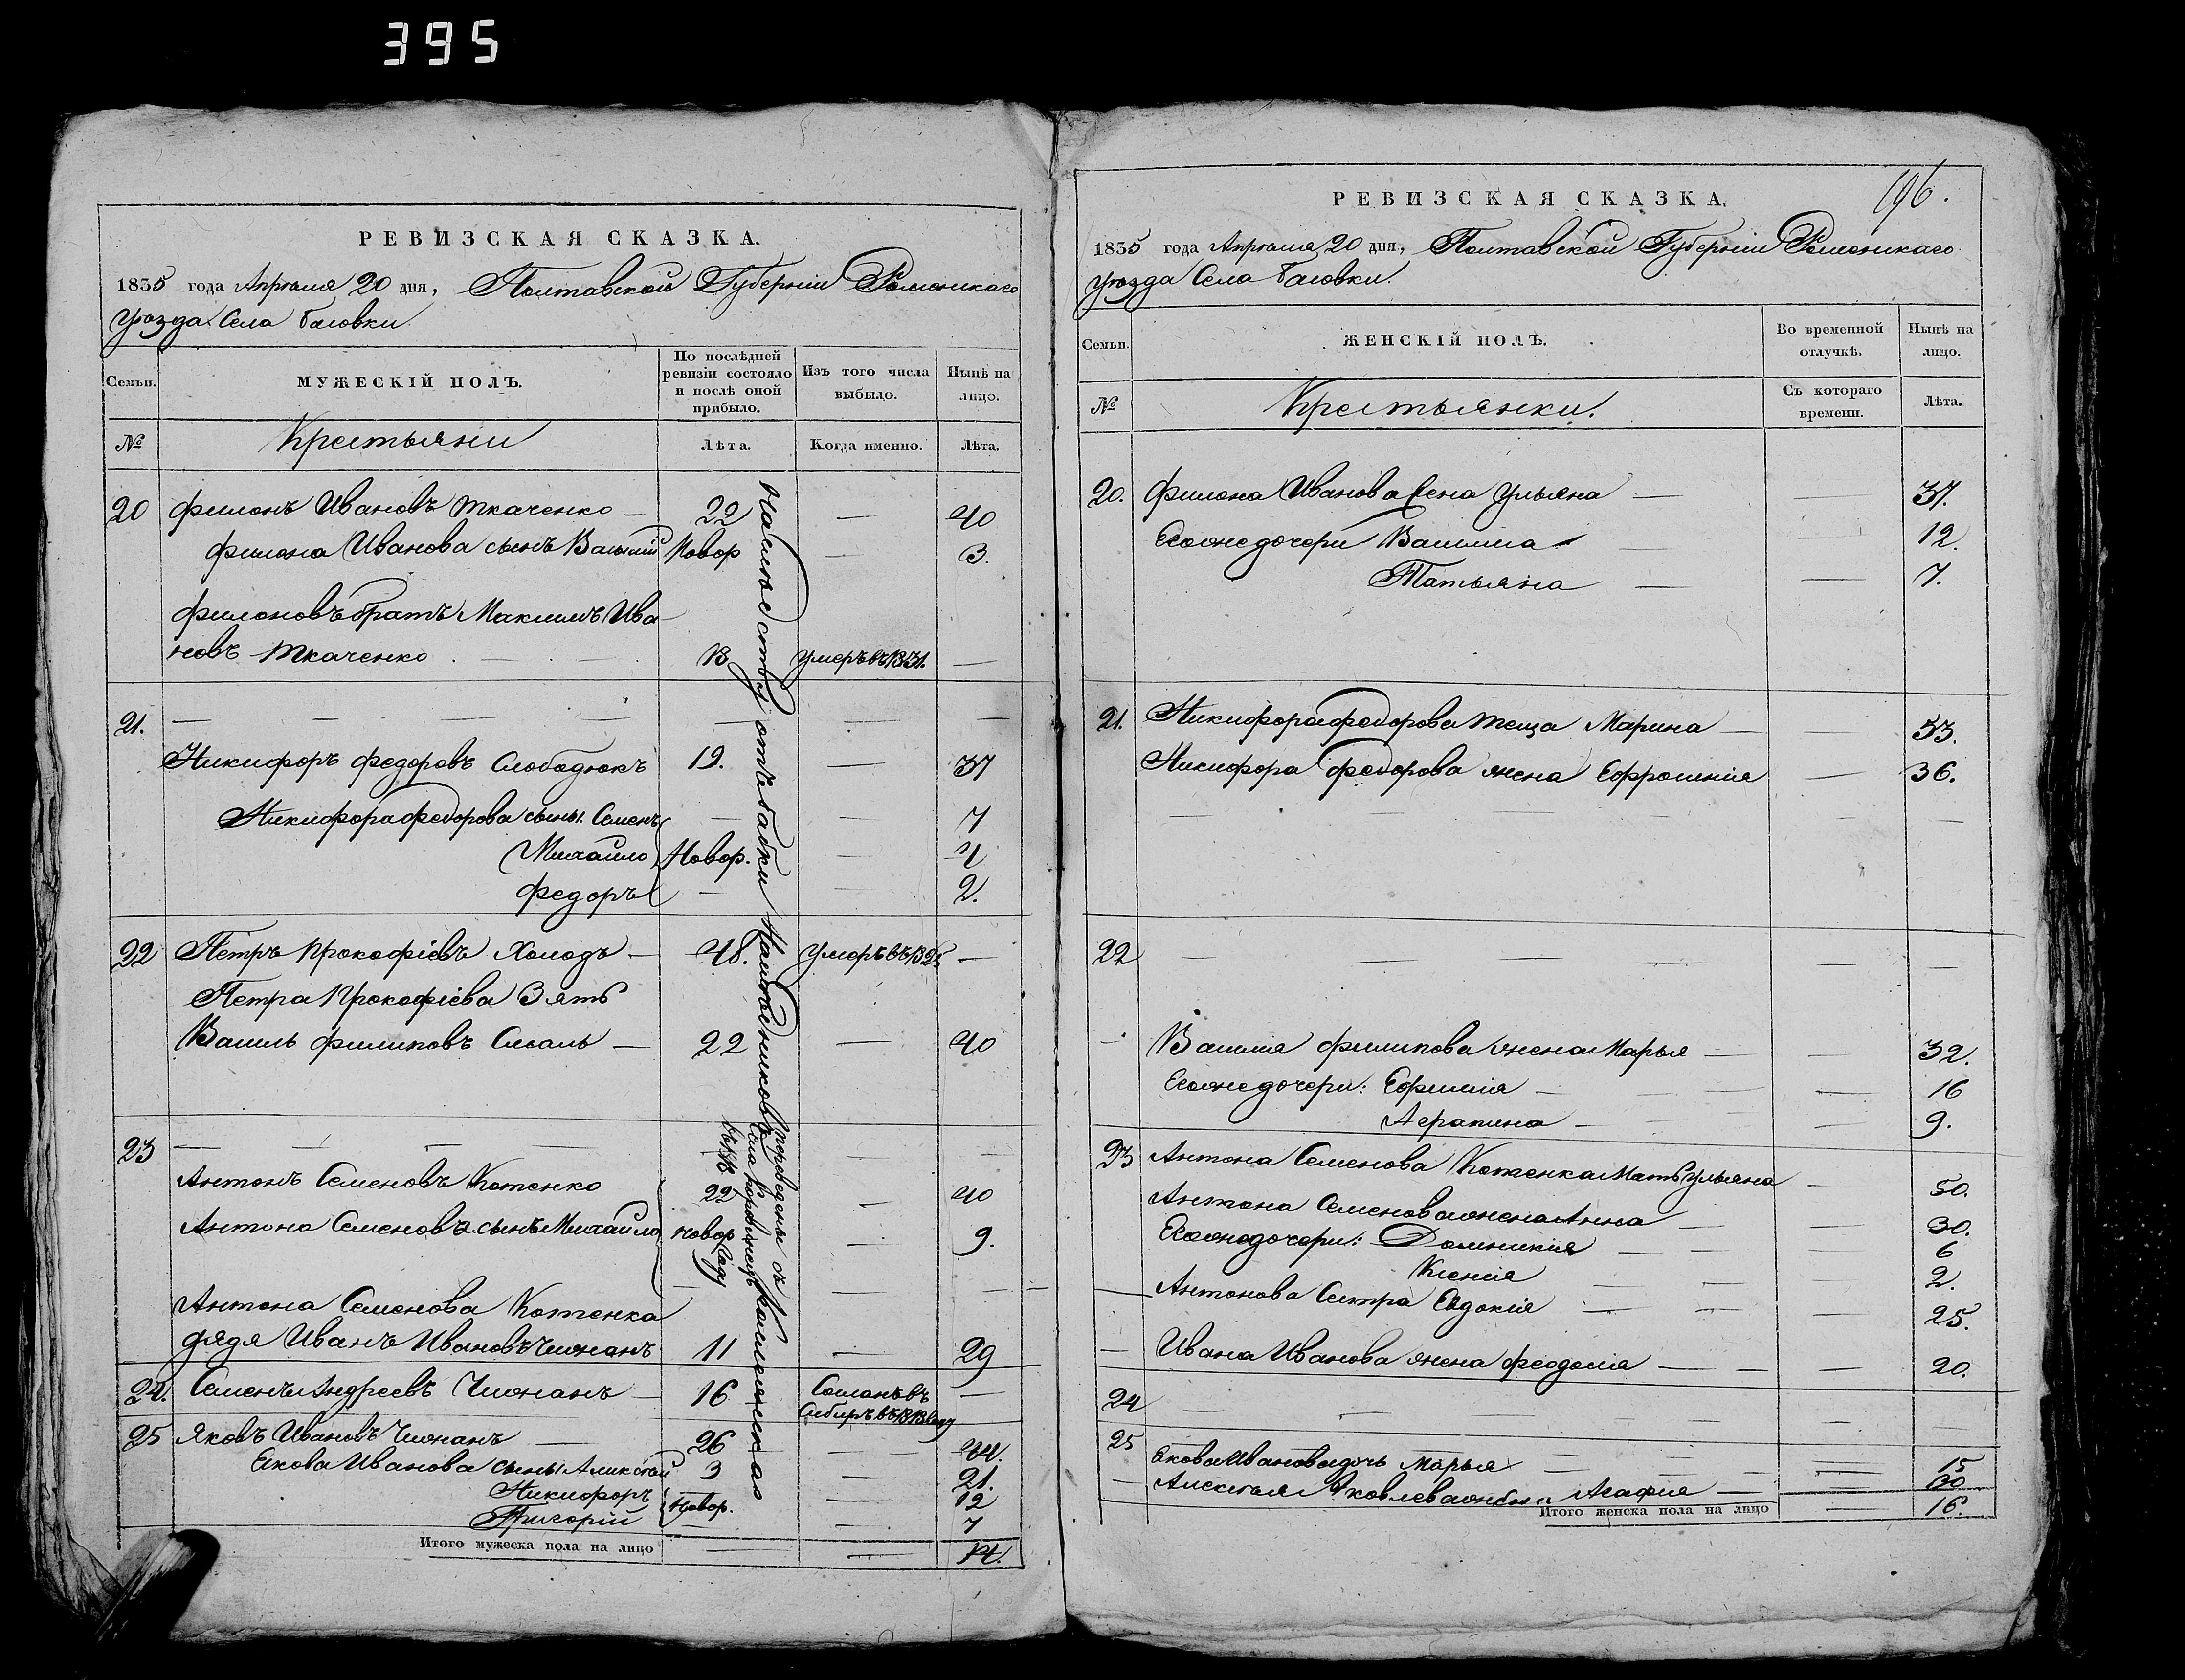 395
РЕВИЗСКАЯ СКАЗКА.
1835 года Апреля 20 дня, Полтавской Губерніи Роменскаго
уезда Села Баговки
Семьи.
МУЖЕСКІЙ ПОЛЪ.
По послѣдней ревизіи состояло и послѣ оной прибыло.
Изъ того числа выбыло.
Нынѣ на лицо.
№
Крестьяни
Лѣта.
Когда именно.
Лѣта.
20 Филонъ Ивановъ Ткаченко — 22 — 40
Филона Иванова сынъ Василій Новор — 3.
Филоновъ братъ Максимъ Ива-
новъ Ткаченко 18 умеръ въ 1831. —
21. — — — — — — —
Никифоръ Федоровъ Слободюкъ 19. — 37
Никифора Федорова сыны: Семенъ — — 7
Михайло Новор. — 4
Федоръ — — 2.
22 Петръ Прокофіевъ Холодъ — 48. Умеръ въ 1825 —
Петра Прокофіева Зять
Василь Филиповъ Сосаль — 22 — 40
23 — — — — — —
Антонъ Семеновъ Котенко 22 — 40
Антона Семеновъ сынъ Михайло новор — 9.
Антона Семенова Котенка — — —
дядя Иванъ Ивановъ Чионанъ 11 — 29
24. Семенъ Андреевъ Чионанъ — 16 Сосланъ въ —
Сибирь въ 1818 году
25 Яковъ Ивановъ Чионанъ — 26 —
Якова Иванова сыны Алексѣй 3 — 21.
Никифоръ Новор. — 12
Григорій — — 7
Итого мужеска пола на лицо — — 14.
Наследству отъ бабки
переведены съ
Села
въ 18
году
196.
РЕВИЗСКАЯ СКАЗКА.
1835 года Апреля 20 дня, Полтавской Губерніи Роменскаго
уезда Села Баговки.
Семьи.
ЖЕНСКІЙ ПОЛЪ.
Во временной отлучкѣ.
Нынѣ на лицо.
№
Крестьянки.
Съ котораго времени.
Лѣта.
20. Филона Иванова жена Ульяна — — 37.
Егоже дочери Василиса — — 12.
Татьяна — — 7.
21. Никифора Федорова теща Марина — — 53.
Никифора Федорова жена Ефросинія — 36.
— — — — — —
22 — — — — — — —
— Василия Филипова жена Марья — — 32.
Егоже дочери: Ефимія — — — 16
Агрипина — — — 9.
23 Антона Семенова Котенка Мать Ульяна — 50.
Антона Семенова жена Анна — — 30.
Егоже дочери: Домникия — — — 6
Ксенія — — — 2.
— Антонова Сестра Евдокія — — — 25.
— Ивана Иванова жена Феодосія — — — 20.
24 — — — — — — —
25 Якова Иванова дочь Марья — — — 15
— Алексѣя Яковлева жена Агафія — — 30
Итого женска пола на лицо — 16.